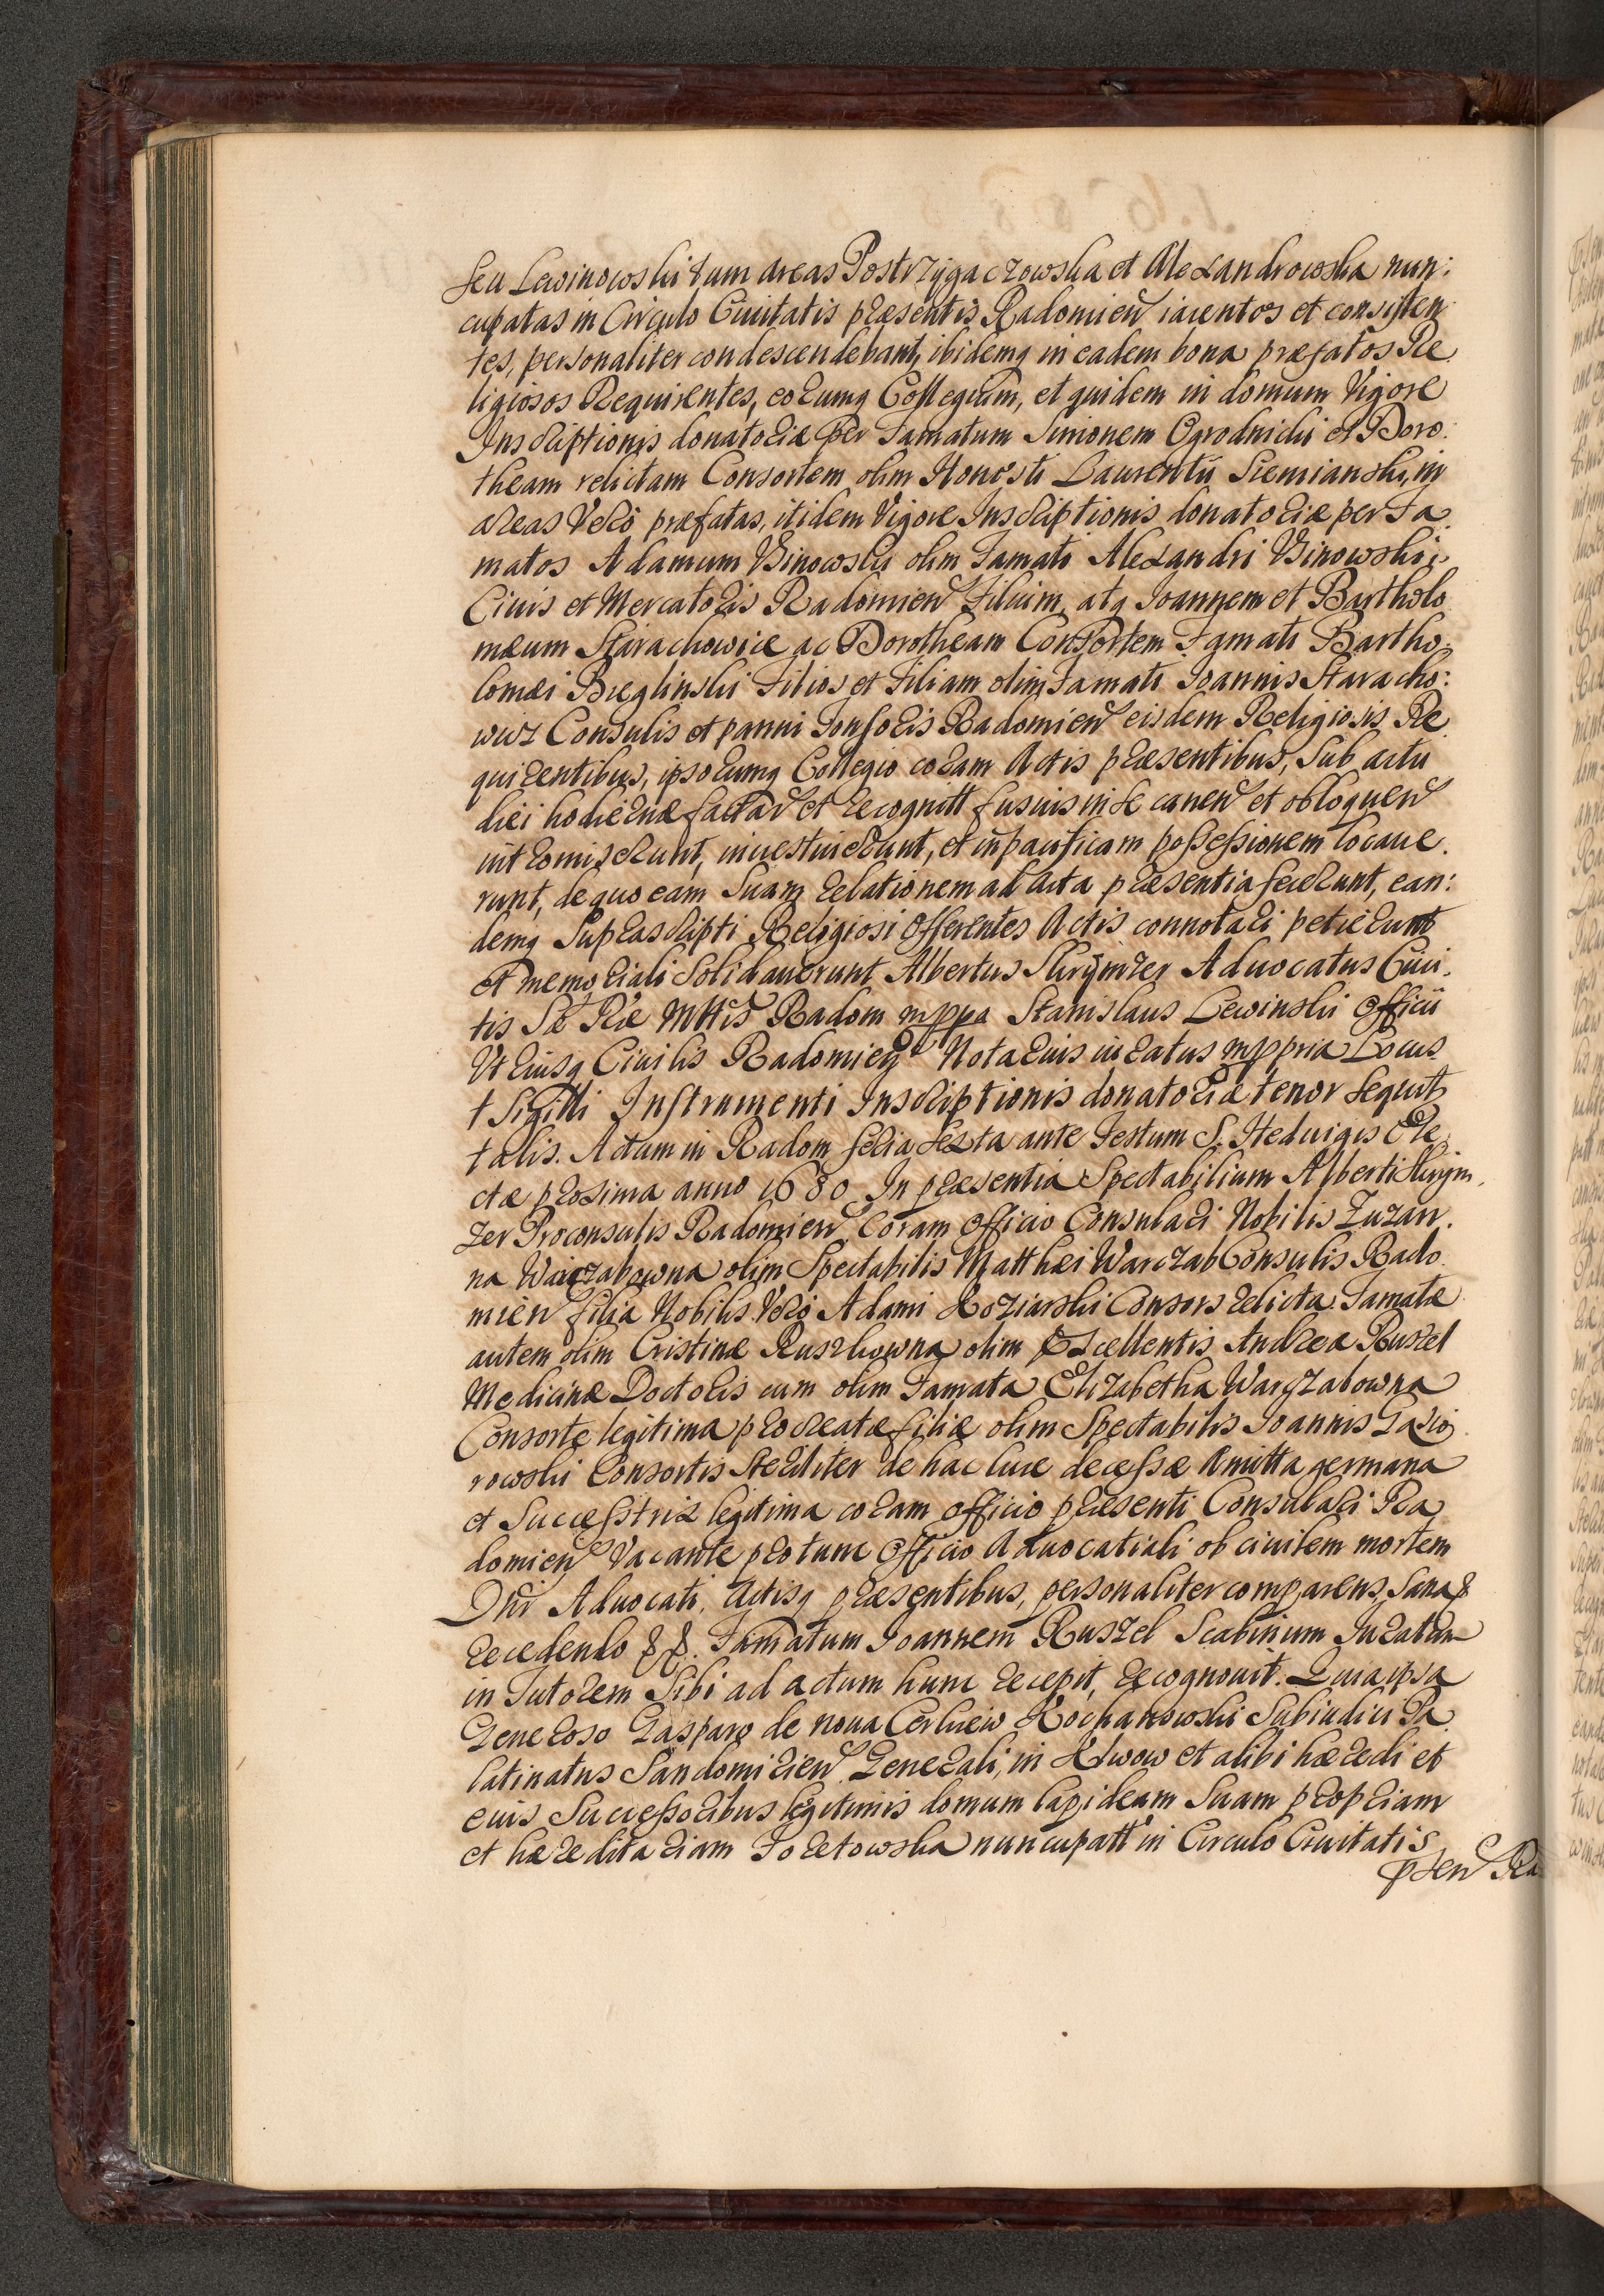 seu Lewinowski tum areas Postrzygaczowska et Alexandrowska nun:
cupatas in Circulo Ciuitatis præsentis Radomien iacentes et consisten
tes, personaliter condescendebant, ibidemq in eadem bona præfatos Re
ligiosos Requirentes, eorumq Collegium, et quidem in domum Vigore
Inscriptionis donatoriæ per Famatum Simonem Ogrodnicki et Doro:
theam relictam Consortem olim Honesti Laurentii Siemianski, in
areas Vero præfatas, itidem Vigore Inscriptionis donatoriæ per Fa
matos Adamum Binowski olim Famati Alexandri Binowskie
Ciuis et Mercatoris Radomien Filium, atq Joannem et Bartholo
mæum Starachowice ac Dorotheam Consortem Famati Bartho:
lomæi Bieglinski Filios et Filiam olim Famati Joannis Staracho:
wicz Consulis et panni Tonsoris Radomien eisdem Religiosis Re
quirentibus, ipsorumq Collegio coram Actis præsentibus, Sub actu
diei hodiernæ factar et recognitt fusius in se canen et obloquen
intromiserunt, inuestiuerunt, et in pacificam possessionem locaue.
runt, de quo eam Suam relationem ad Acta præsentia fecerunt, ean:
demq Suprascripti Religiosi Offerentes Actis connotari petierunt
et memoriali Solidauerunt Albertus Skrÿnzer Aduocatus Ciui.
tis Sæ Ræ Mttis Radom mppa Stanislaus Lewinski Officii
Vtriusq Ciuilis Radomien Notarius iuratus mppria Locus
† Sigilli Instrumenti Inscriptionis donatoriæ tenor Sequit
talis. Actum in Radom feria Sexta ante Festum S. Heduigis Ele
ctæ proxima anno 1680 In præsentia Spectabilium Alberti Skrÿn
zer Proconsulis Radomien. Coram Officio Consulari Nobilis Zuzan.
na Warczabowna olim Spectabilis Matthæi Warczab Consulis Rado
mien filia Nobilis Vero Adami Koziarski Consors relicta Famatæ
autem olim Cristinæ Ruszlowna olim Excellentis Andreæ Ruszel
Medicinæ Doctoris cum olim Famata Elizabetha Warczabowna
Consorte legitima procreatæ filiæ olim Spectabilis Joannis Gasio
rowski Consortis Steriliter de hac luce decessæ Amitta germana
et Successtrix legitima coram officio præsenti Consulari Ra
domien Vacante protunc Officio Aduocatiali ob ciuilem mortem
Dni Aduocati, Actisq præsentibus, personaliter comparens, Sana &
recedendo &&. Famatum Joannem Ruszel Scabinum Juratum
in Tutorem Sibi ad actum hunc recepit, recognouit. Quia ipsa
Generoso Gasparo de noua Cerkiew Kochanowski Subiudici Pa
latinatus Sandomirien Generali, in Klwow et alibi hæredi et
eius Successoribus legitimis domum lapideam Suam propriam
et hæreditariam Foretowska nuncupatt in Circulo Ciuitatis
pnten Ra